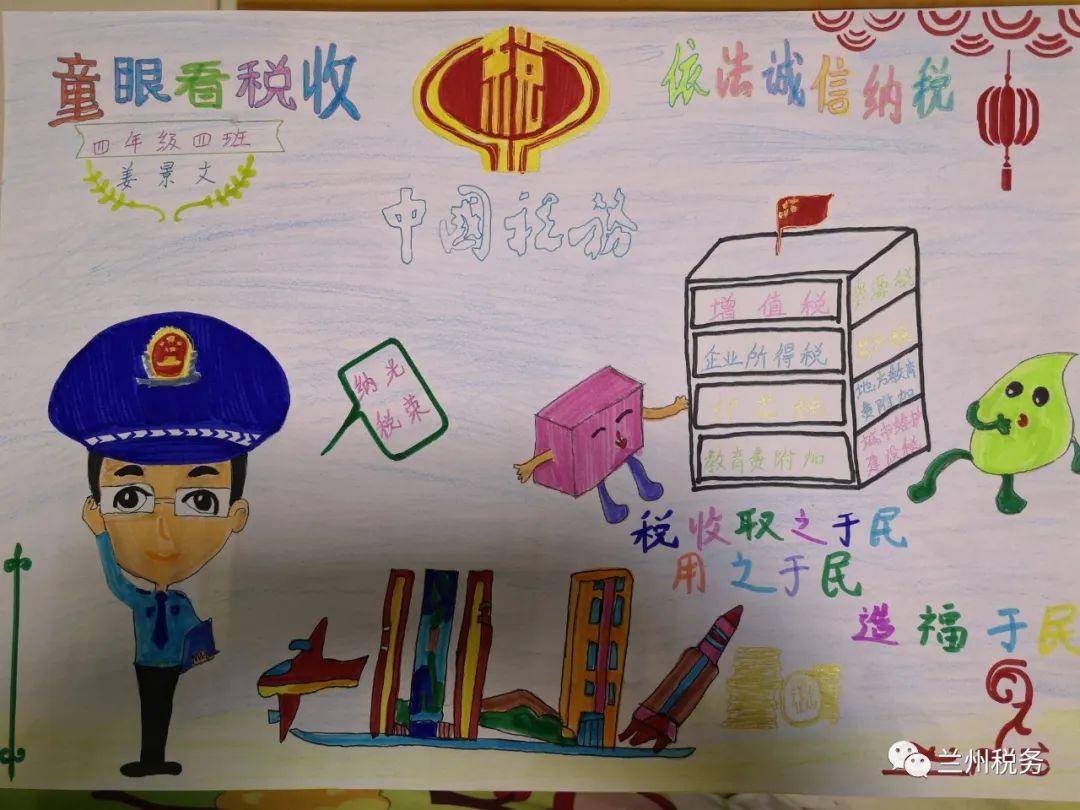 童眼看税收
四年级四班
姜景文
税
依法诚信纳税
中國税務
纳税光荣
增值税
企业所得税
印花税
教育费附加
资源税
地方教育费附加
城市维护建设税
税收取之于民
用之于民
造福于民
税
兰州税务